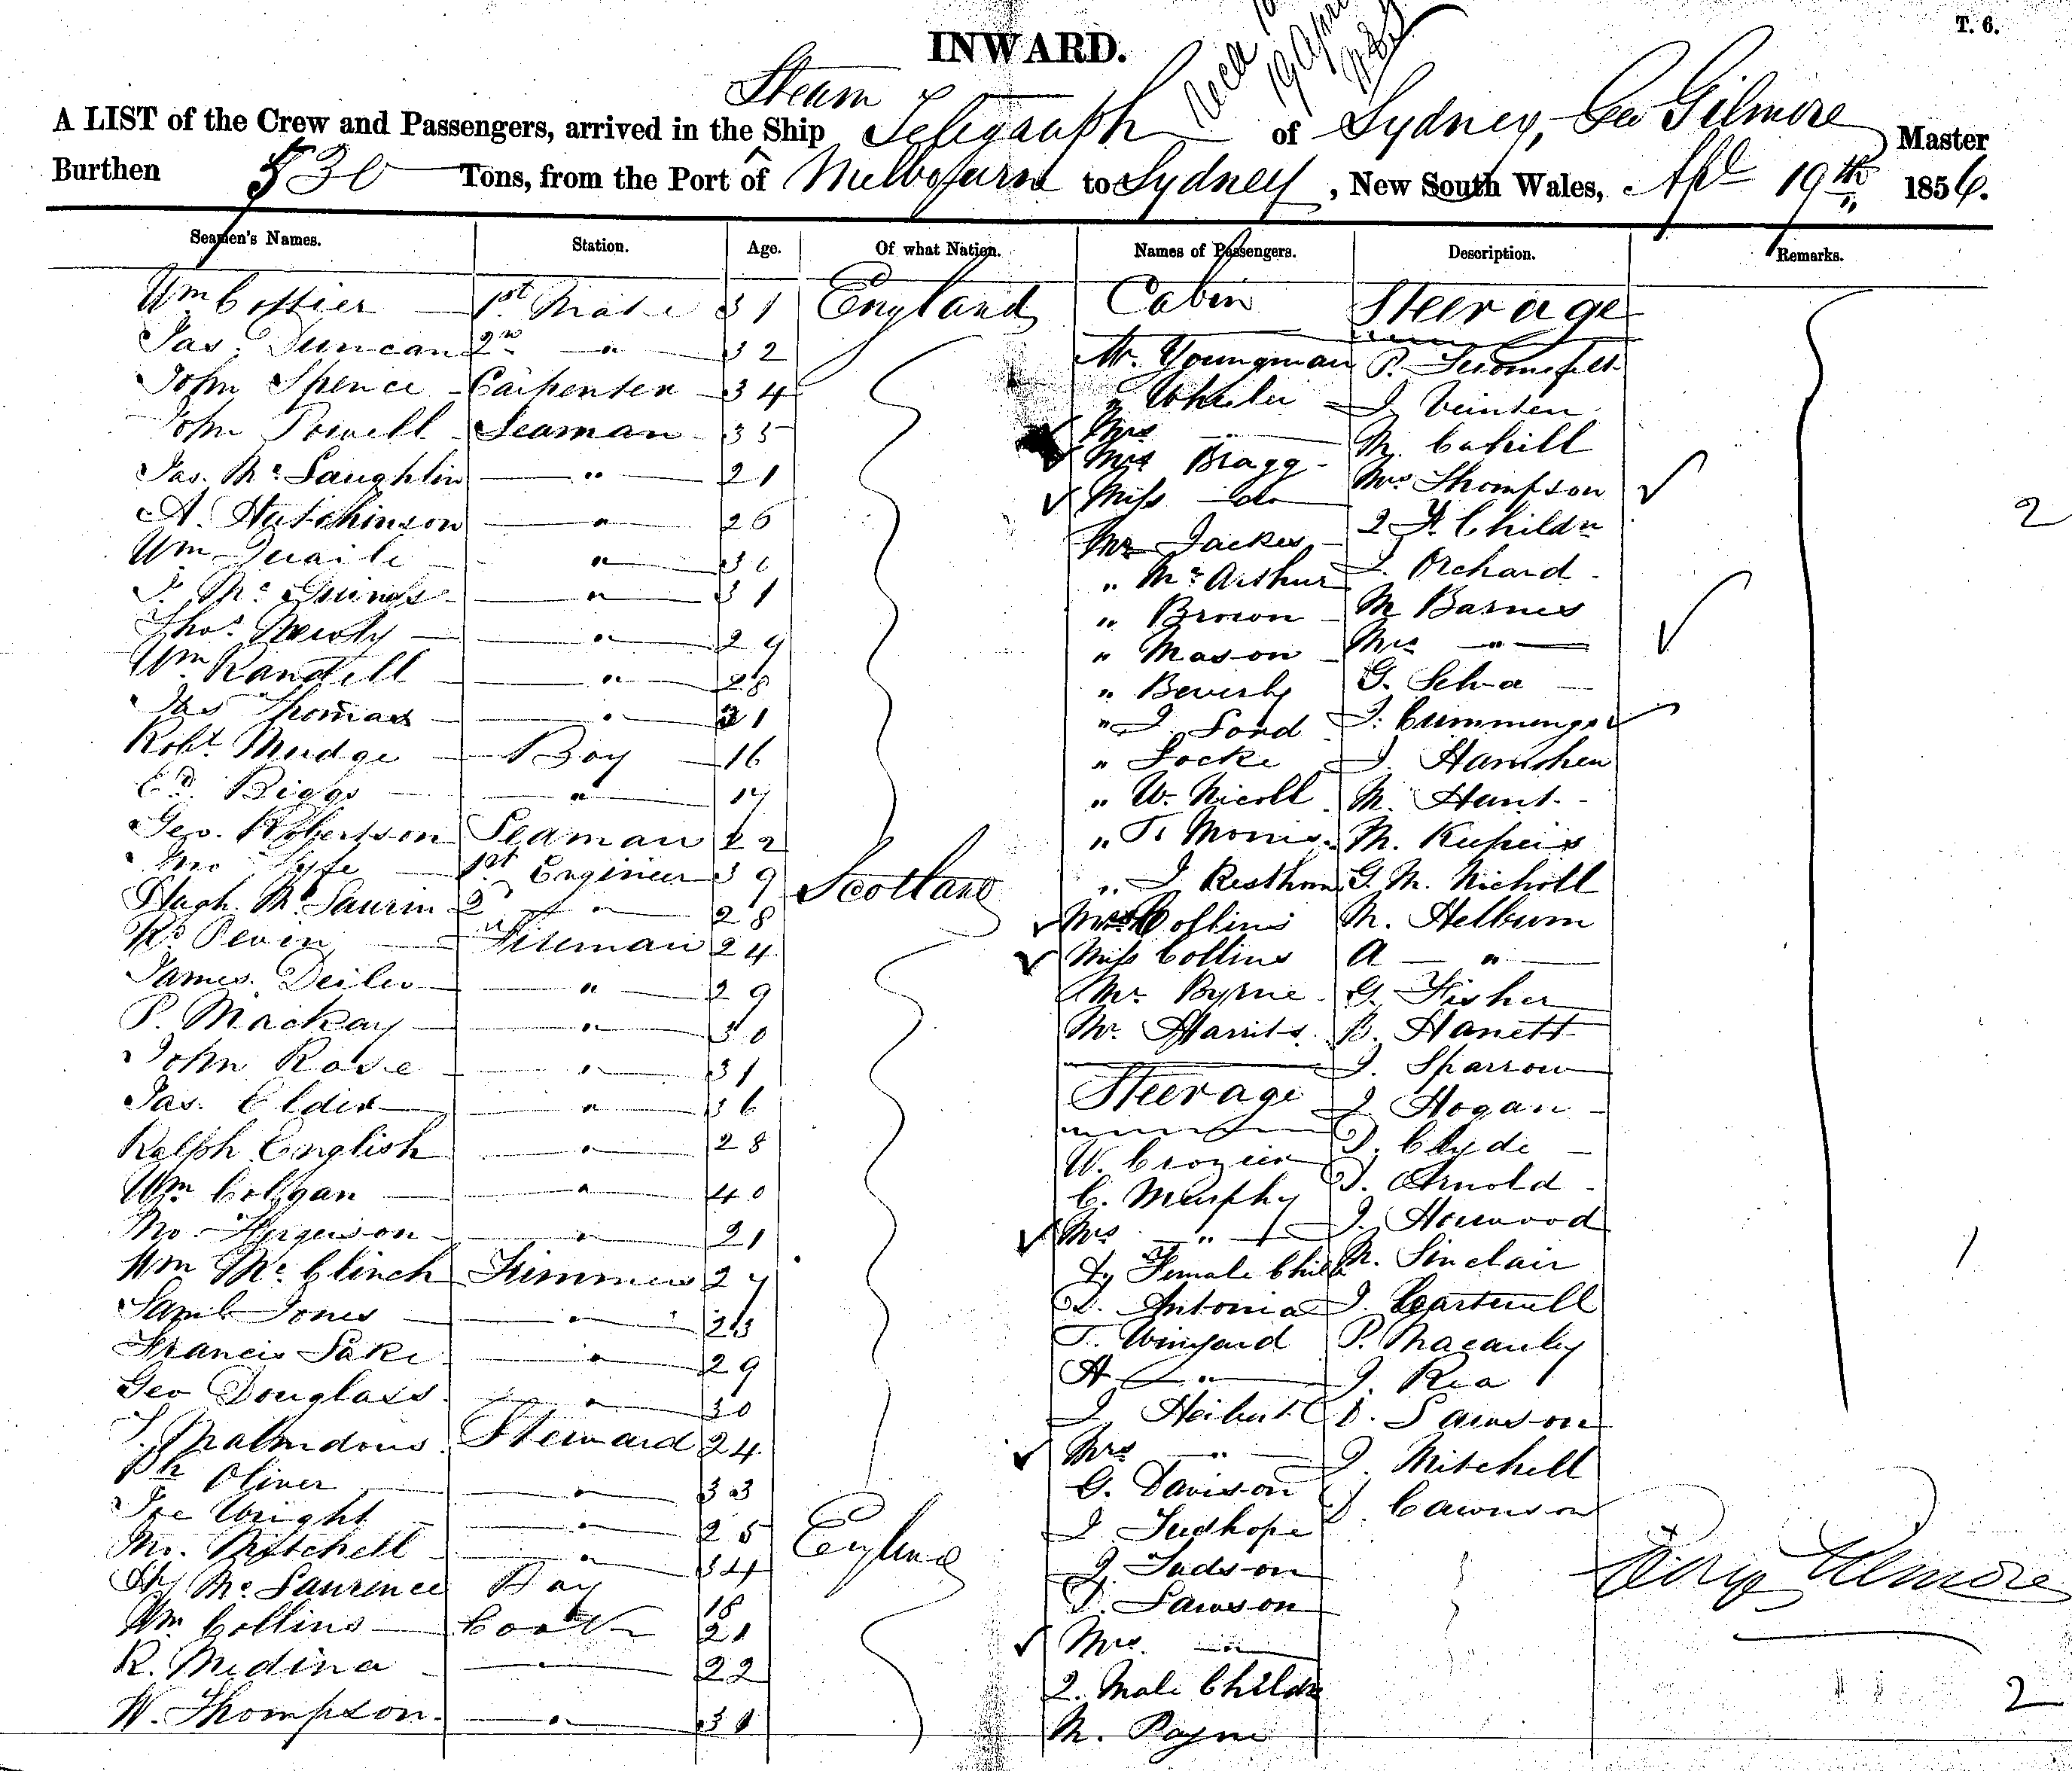 T. 6.
INWARD.
19 Apr
Steam
A LIST of the Crew and Passengers, arrived in the Ship Telegraph of Sydney, Geo Gilmore Master
Burthen 530 Tons, from the Port of Melbourne to Sydney, New South Wales, Apl 19th 1856.
Seamen's Names. Station. Age. Of what Nation. Names of Passengers. Description. Remarks.
Wm Cottier 1st Mate 31 England Cabin Steerage
Jas. Duncan 2nd " 32 Mr. Youngman P.
John Spence Carpenter 34 " Wheeler J.
John Powell Seaman 35 Mrs " M. Cahill
Jas. Mc Laughlin " 21 Mrs Bragg Mrs Thompson
A. Hutchinson " 26 Miss do 2 F. Childn 2
Wm Quaile " 36 Mr Jackes J. Orchard
J. Mc " 31 " Mc Arthur M Barnes
Thos. Newly " 29 " Brown Mrs "
Wm Randell " 28 " Mason G. Selva
Jas Thomas " 21 " Beverly J. Cummings
Robt Mudge Boy 16 " J. Lord J. Hamshen
Ed. Biggs " 17 " Locke M. Hunt
Geo. Robertson Seaman 22 " W. Nicoll M. Kupeis
Jno Fyfe 1st Engineer 39 Scotland " T. Morris G. M. Nicholl
Hugh Mc Laurin 2 " 28 " J. Resthon M. Helburn
Rd Pevin Fireman 24 Mrs Collins A "
James Deiler " 29 Miss Collins G. Fisher
P. Mackay " 30 Mr. Byrne B. Hanett
John Rose " 31 Mr. Harris J. Sparrow
Jas. Elder " 36 Steerage J. Hogan
Ralph English " 28 W. Crozier J. Clyde
Wm Colgan " 40 C. Murphy J. Arnold
Jno. Fergerson " 21 Mrs " J. Horwood
Wm Mc Clinch Trimmer 27 Female Child M. Sinclair 1
Saml Jones " 23 D. Antonia J. Cartwell
Francis Lake " 29 T. Wingard P. Macauly
Geo Douglass " 30 H " J. Rea
J. Steward 24 J. Heibert D. Lawson
Oliver " 33 Mrs " J. Mitchell
Joe Wright " 25 G. Davison J. Cawnson
Jno. Mitchell " 34 England J. Tudhope George Gilmore
Hy Mc Laurence Boy 18 J. Judson
Wm Collins Cook 21 D. Lawson
R. Medina " 22 Mrs. "
W. Thompson " 31 2. Male Childn 2
M. Payne